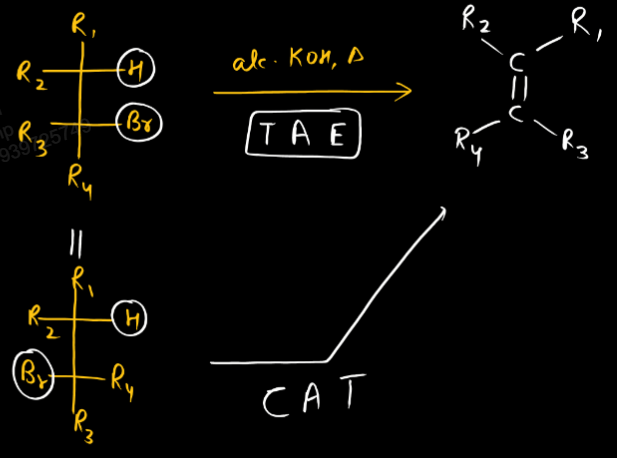 R₁
R₂ H
R₃ Br
R₄
alc. KOH, Δ
T A E
R₂ R₁
C
||
C
R₄ R₃
||
R₁
R₂ H
Br R₄
R₃
C A T